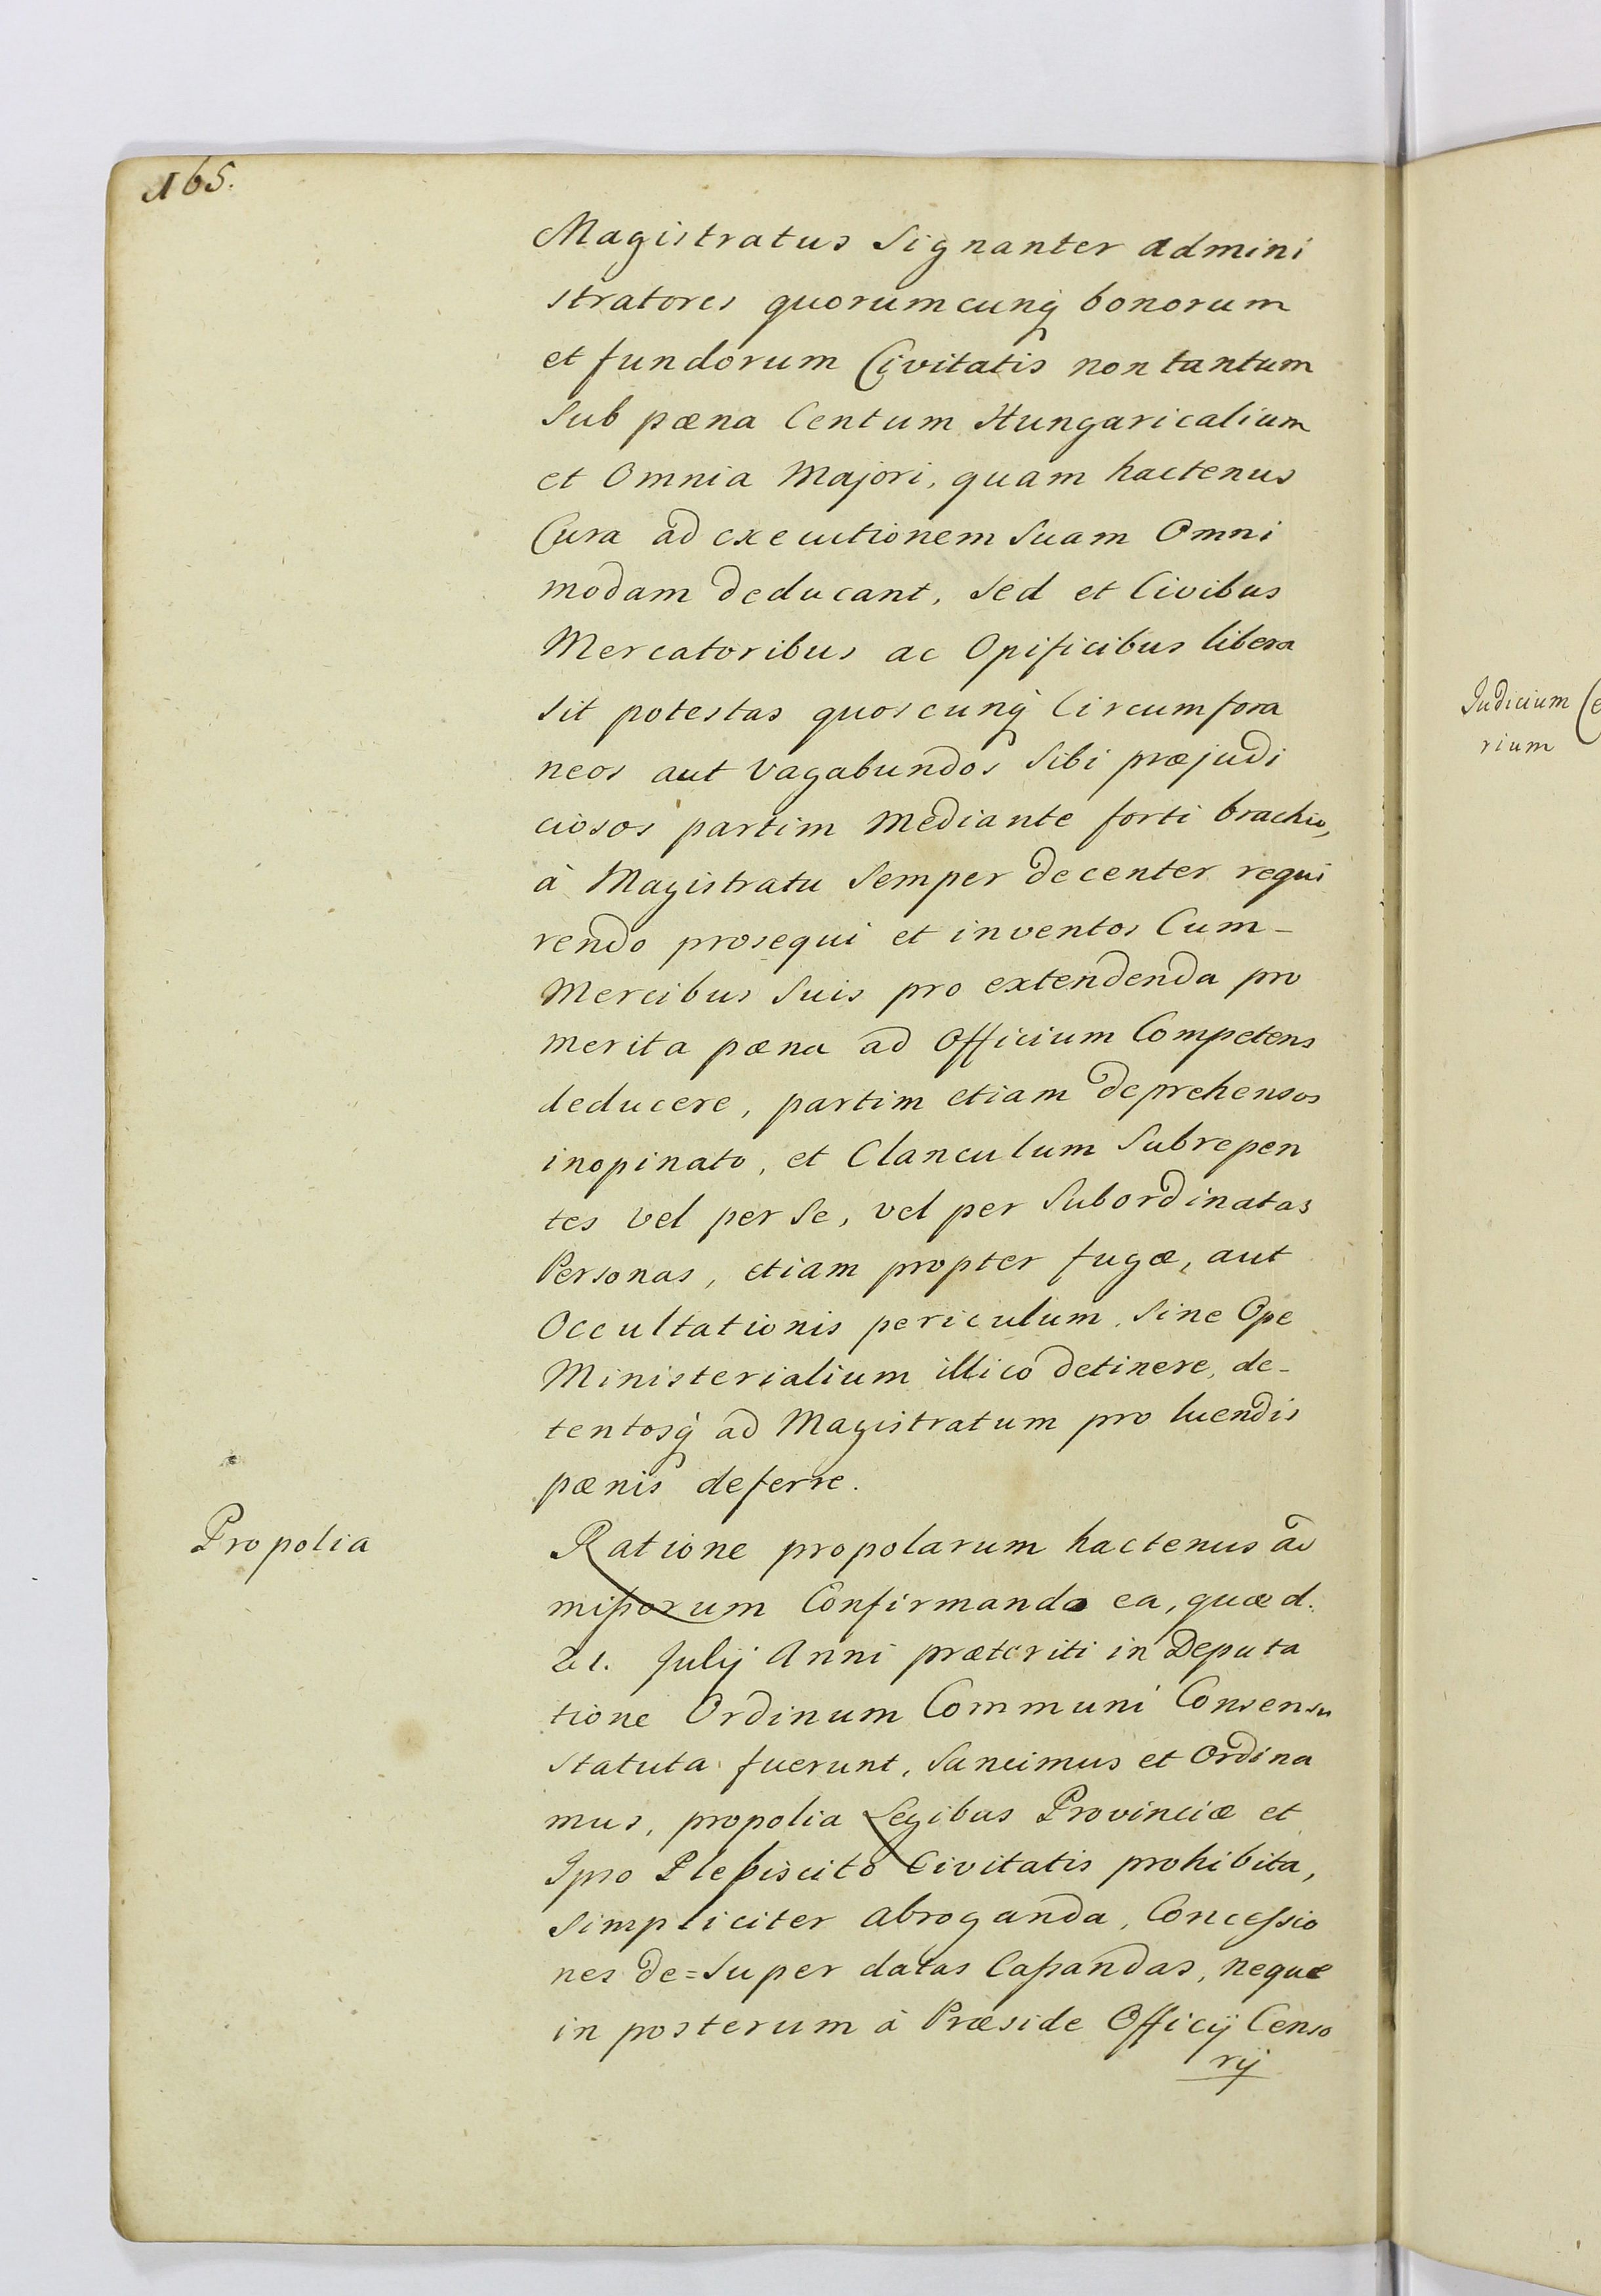 165.
Magistratus Signanter admini
stratores quorumcunq bonorum
et fundorum Civitatis non tantum
Sub pæna Centum Hungaricalium
et Omnia Majori, quam hactenus
Cura ad executionem Suam Omni
modam deducant, Sed et Civibus
Mercatoribus ac Opificibus libera
Sit potestas quoscunq Circumfora
neos aut vagabundos Sibi præjudi
ciosos partim Mediante forti brachio,
à Magistratu Semper decenter requi
rendo prosequi et inventos Cum-
Mercibus Suis pro extendenda pro
merita pæna ad Officium Competens
deducere, partim etiam deprehensos
inopinato, et Clanculum Subrepen
tes vel per Se, vel per Subordinatas
Personas, etiam propter fugæ, aut
Occultationis periculum, Sine Ope
Ministerialium illico detinere, de-
tentosq ad Magistratum pro luendis
pænis deferre.
Propolia
Ratione propolarum hactenus ad
missorum Confirmando ea, quæ d.
21. Julij Anni præteriti in Deputa
tione Ordinum Communi Consensu
Statuta fuerunt, Sancimus et Ordina
mus, propolia Legibus Provinciæ et
Ipso Plebiscito Civitatis prohibita,
Simpliciter abroganda, Concessio
nes de=super datas Cassandas, neque
in posterum à Præside Officij Censo
rij
Judicium
rium